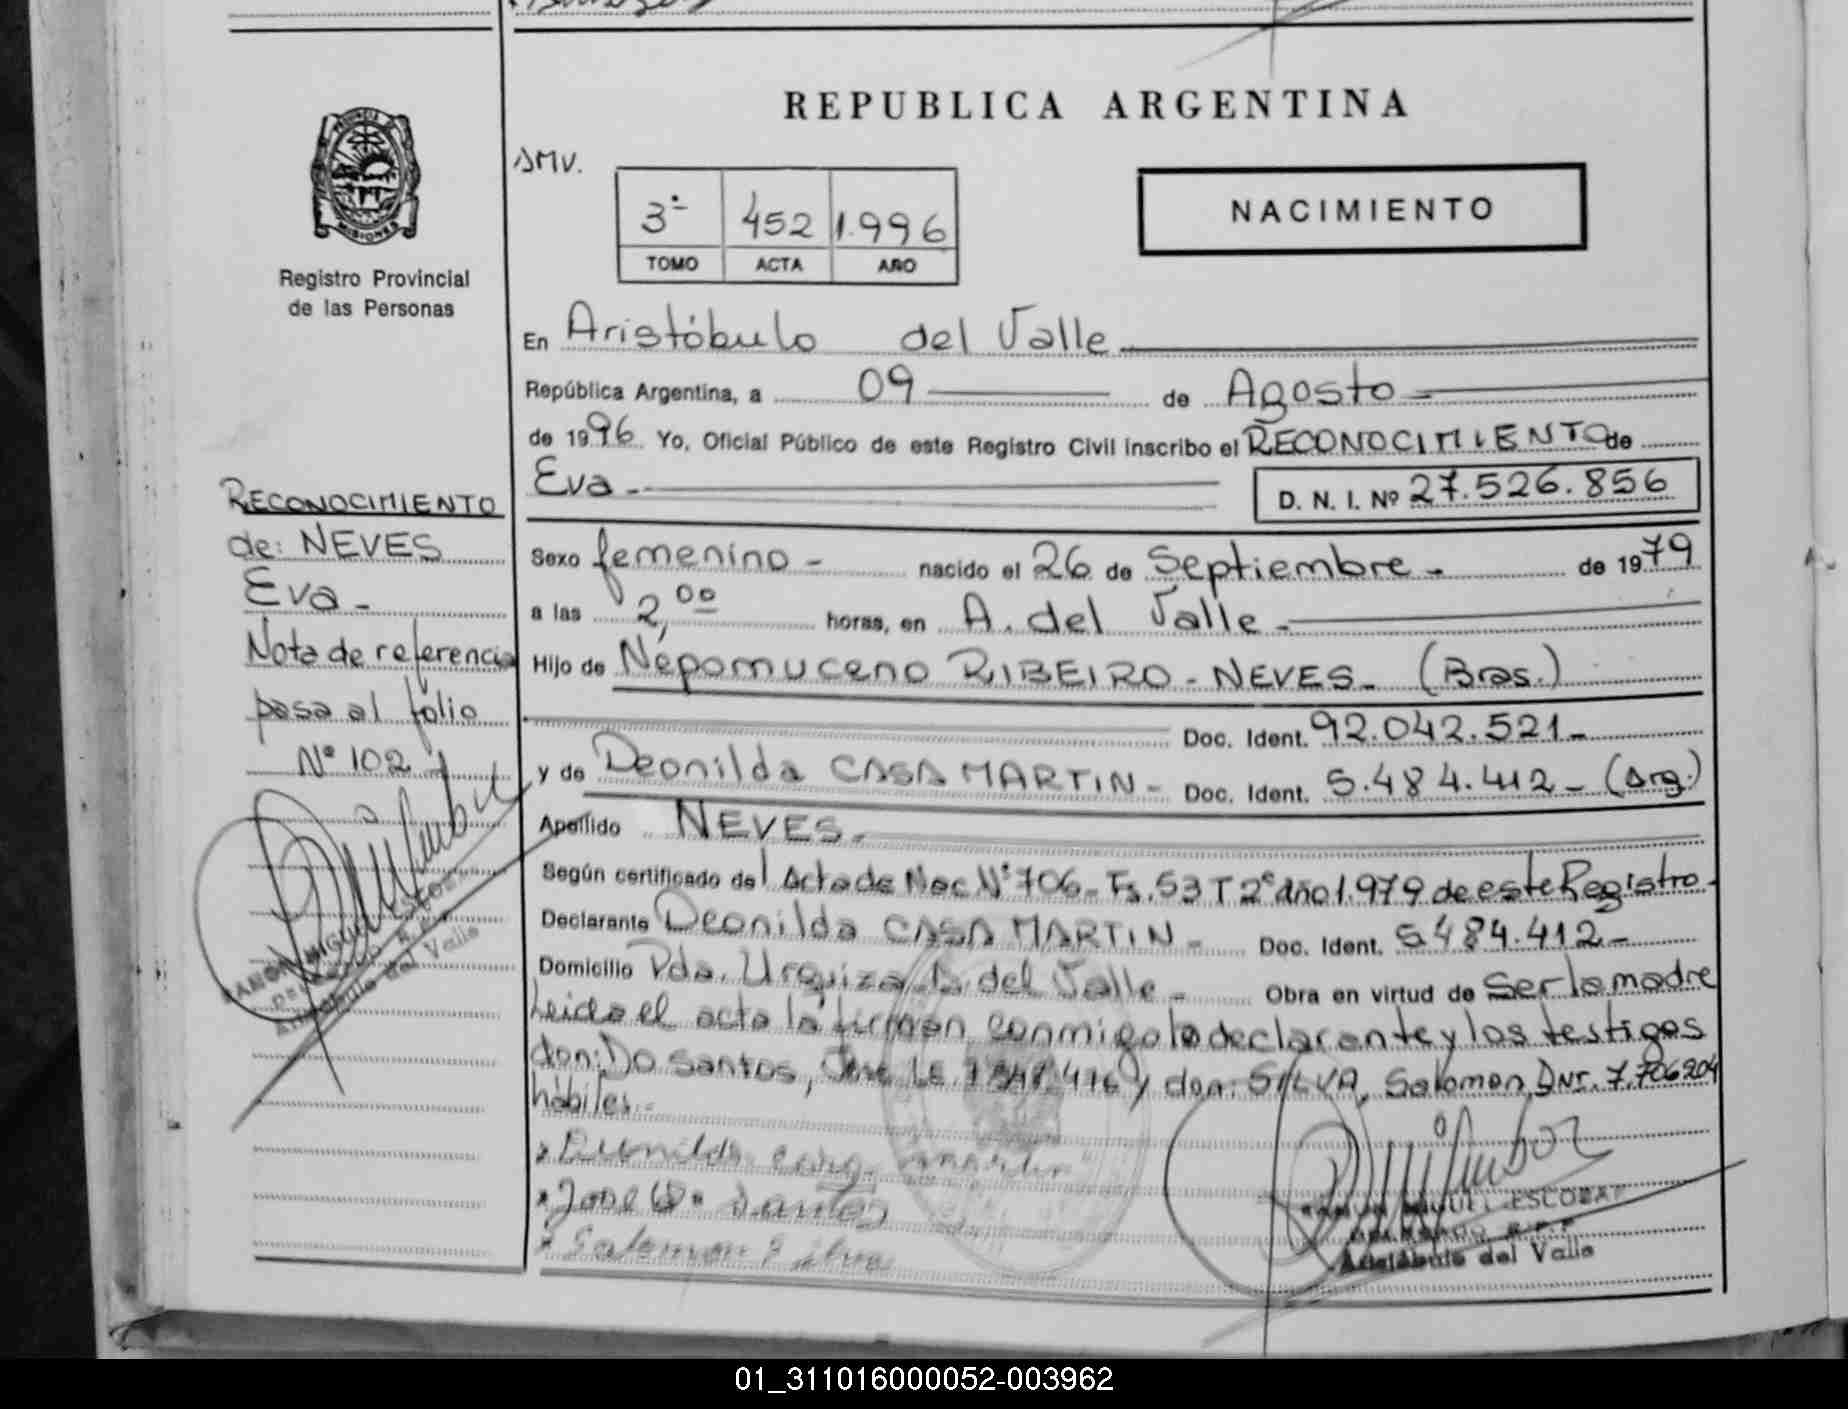 REPUBLICA ARGENTINA
PROVINCIA
MISIONES
Registro Provincial
de las Personas
SMV.
3º 452 1.996
TOMO ACTA AÑO
NACIMIENTO
En Aristóbulo del Valle
República Argentina, a 09 de Agosto
de 1996 Yo, Oficial Público de este Registro Civil inscribo el RECONOCIMIENTO de
Eva - D. N. I. Nº 27.526.856
Sexo femenino - nacido el 26 de Septiembre - de 1979
a las 2,00 horas, en A. del Valle -
Hijo de Nepomuceno RIBEIRO - NEVES - (Bras.)
Doc. Ident. 92.042.521-
y de Deonilda CASA MARTIN - Doc. Ident. 5.484.412- (Arg.)
Apellido NEVES-
Según certificado del Acta de Nac Nº 706- Fs. 53 T 2º año 1.979 de este Registro-
Declarante Deonilda CASA MARTIN - Doc. Ident. 5.484.412-
Domicilio Pda. Urquiza A. del Valle - Obra en virtud de Ser la madre
Leida el acta la firman conmigo la declarante y los testigos
don: DO Santos, José LE y don: SILVA, Salomon, DNI. 7.706204
hábiles.-
José Do Santos
Salomon Silva
RECONOCIMIENTO
de: NEVES
Eva -
Nota de referencia
pasa al fólio
Nº 102
RAMON MIGUEL ESCOBAR
DELEGADO R.P.P.
Aristóbulo del Valle
RAMON MIGUEL ESCOBAR
DELEGADO R.P.P.
Aristóbulo del Valle
01_311016000052-003962